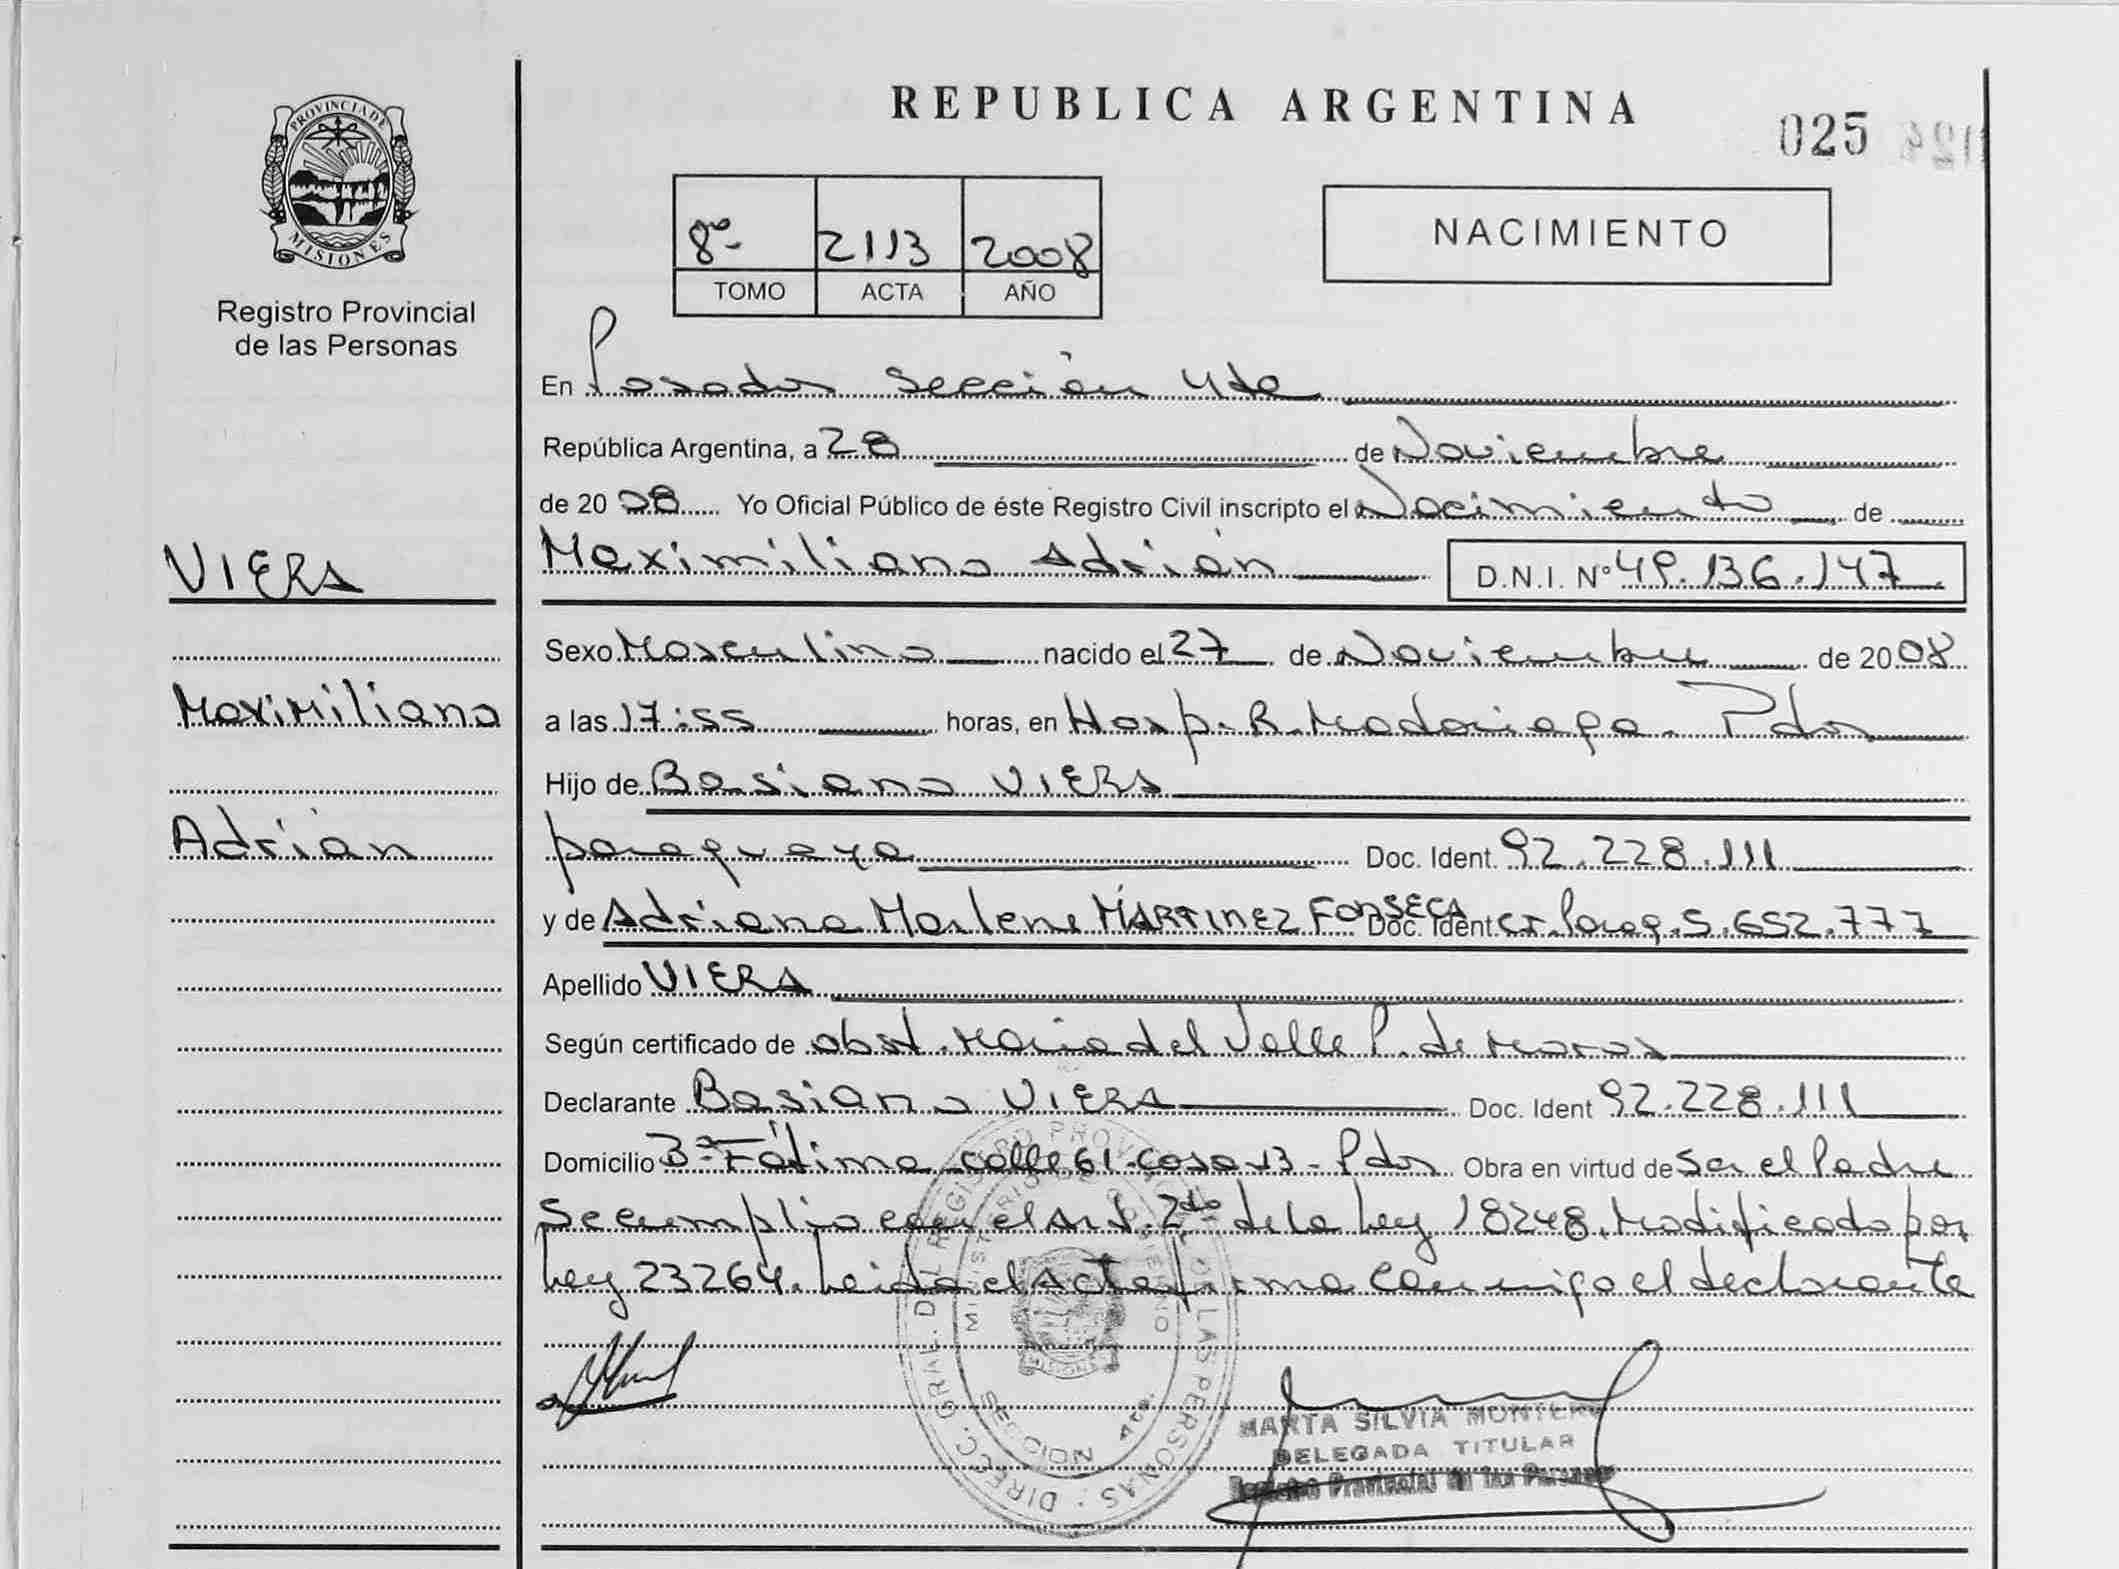 PROVINCIA DE
MISIONES
Registro Provincial
de las Personas
VIERA
Maximiliano
Adrián
REPUBLICA ARGENTINA
025
8º-
2113
2008
TOMO
ACTA
AÑO
NACIMIENTO
En Posadas Sección 4ta
República Argentina, a 28 de Noviembre
de 2008 Yo Oficial Público de éste Registro Civil inscripto el Nacimiento de
Maximiliano Adrián D.N.I. Nº 49.136.147
Sexo Masculino nacido el 27 de Noviembre de 2008
a las 17:55 horas, en Hosp. R. Madariaga. Pdas
Hijo de Basiano VIERA
paraguaya Doc. Ident. 92.228.111
y de Adriana Marlene MARTINEZ FONSECA Doc. Ident CI. Parag. 5.652.777
Apellido VIERA
Según certificado de obst. Maria del Valle P. de
Declarante Basiano VIERA Doc. Ident 92.228.111
Domicilio Bº Fátima calle 61-casa 13- Pdas Obra en virtud de ser el Padre
Se cumplio con el Art. 2do de la Ley 18248. Modificado por
Ley 23264. Leida el Acta firma conmigo el declarante
DIRECC. GRAL. DEL REGISTRO PROV. DE LAS PERSONAS
MINISTERIO DE GOBIERNO
SECCION 4ta.
MISIONES
MARTA SILVIA MONTERO
DELEGADA TITULAR
Registro Provincial de las Personas